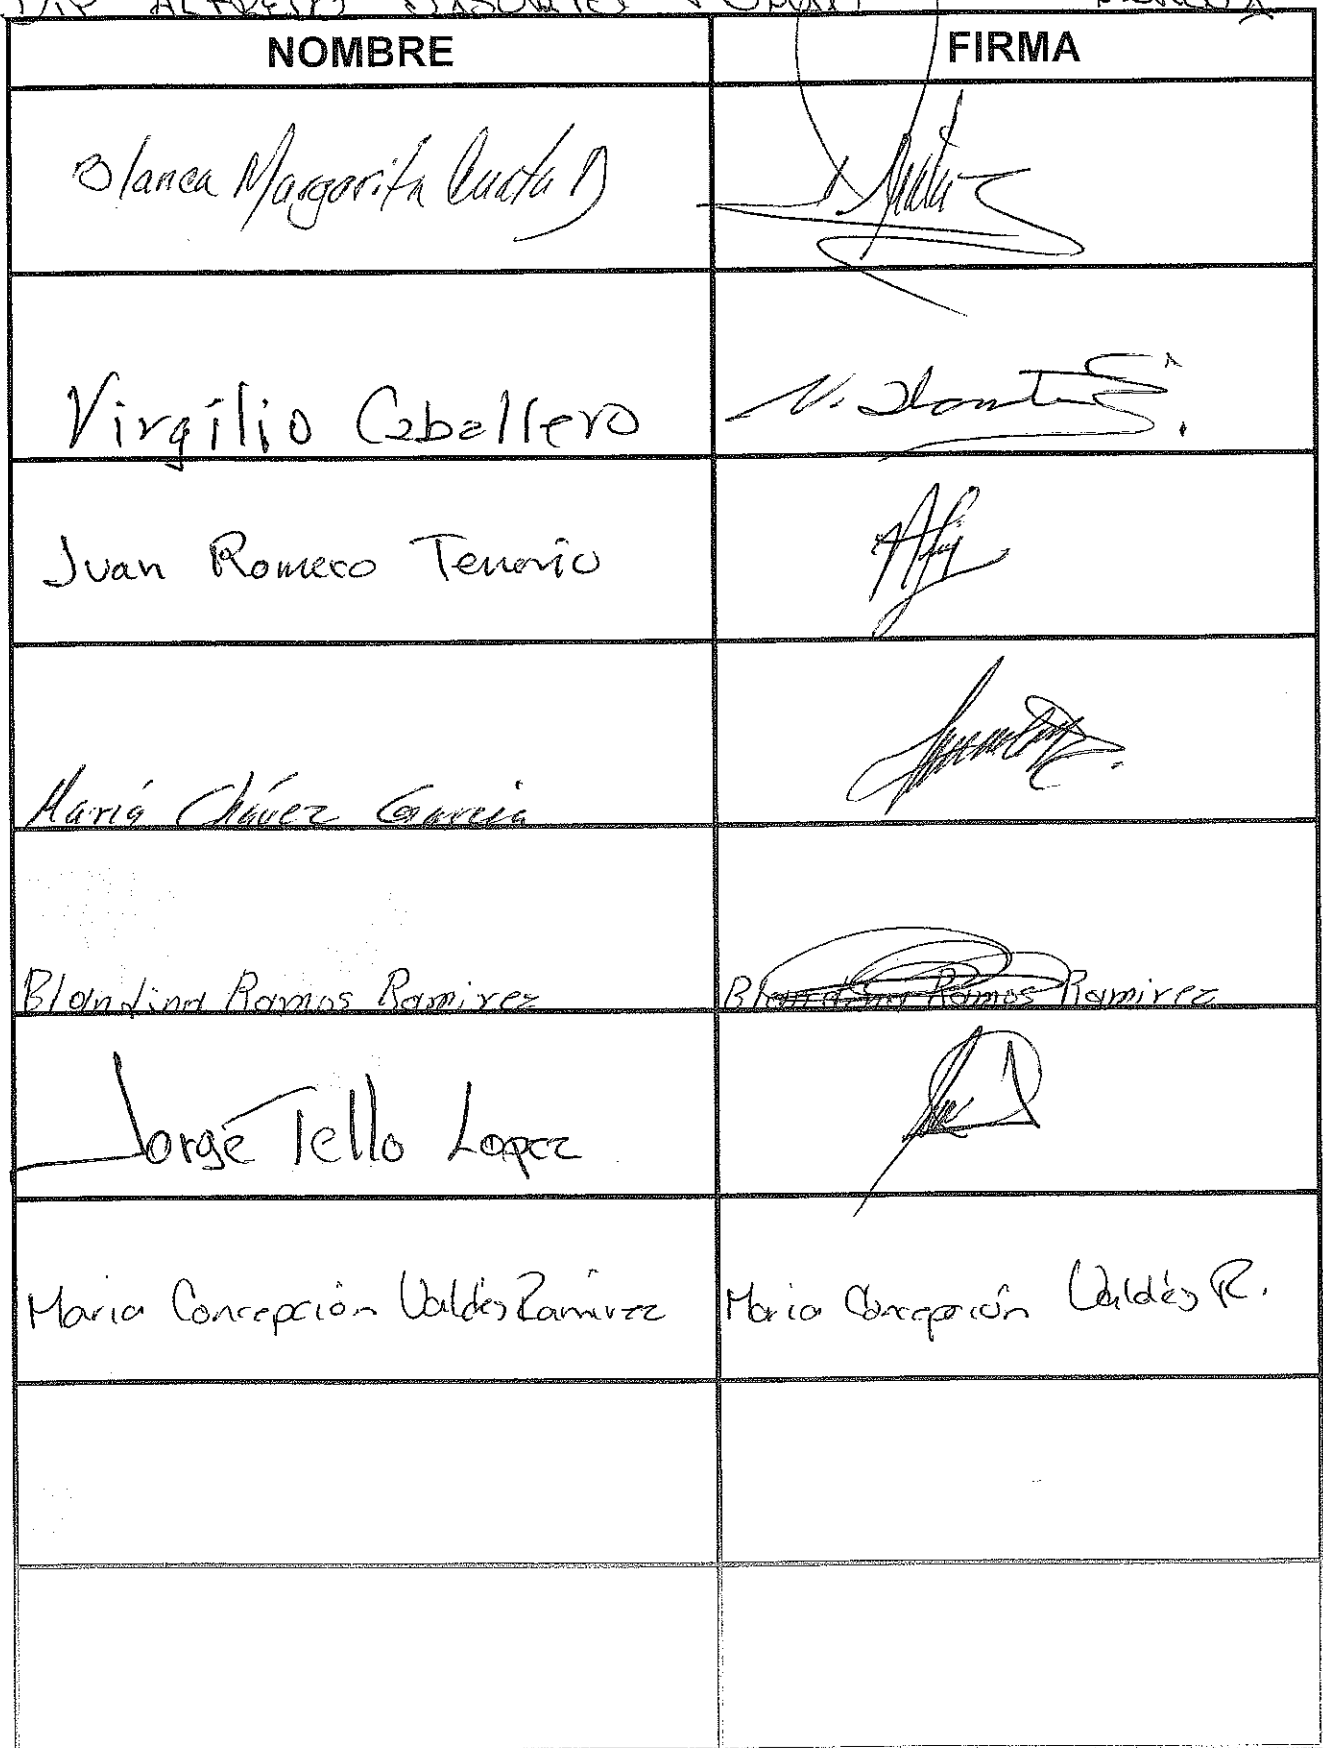 DIP ALFREDO
NOMBRE FIRMA
Blanca Margarita Cuata D
Virgilio Caballero
Juan Romero Tenorio
María Chávez García
Blandina Ramos Ramirez Blandina Ramos Ramirez
Jorge Tello Lopez
Maria Concepción Valdés Ramírez Maria Concepción Valdés R.